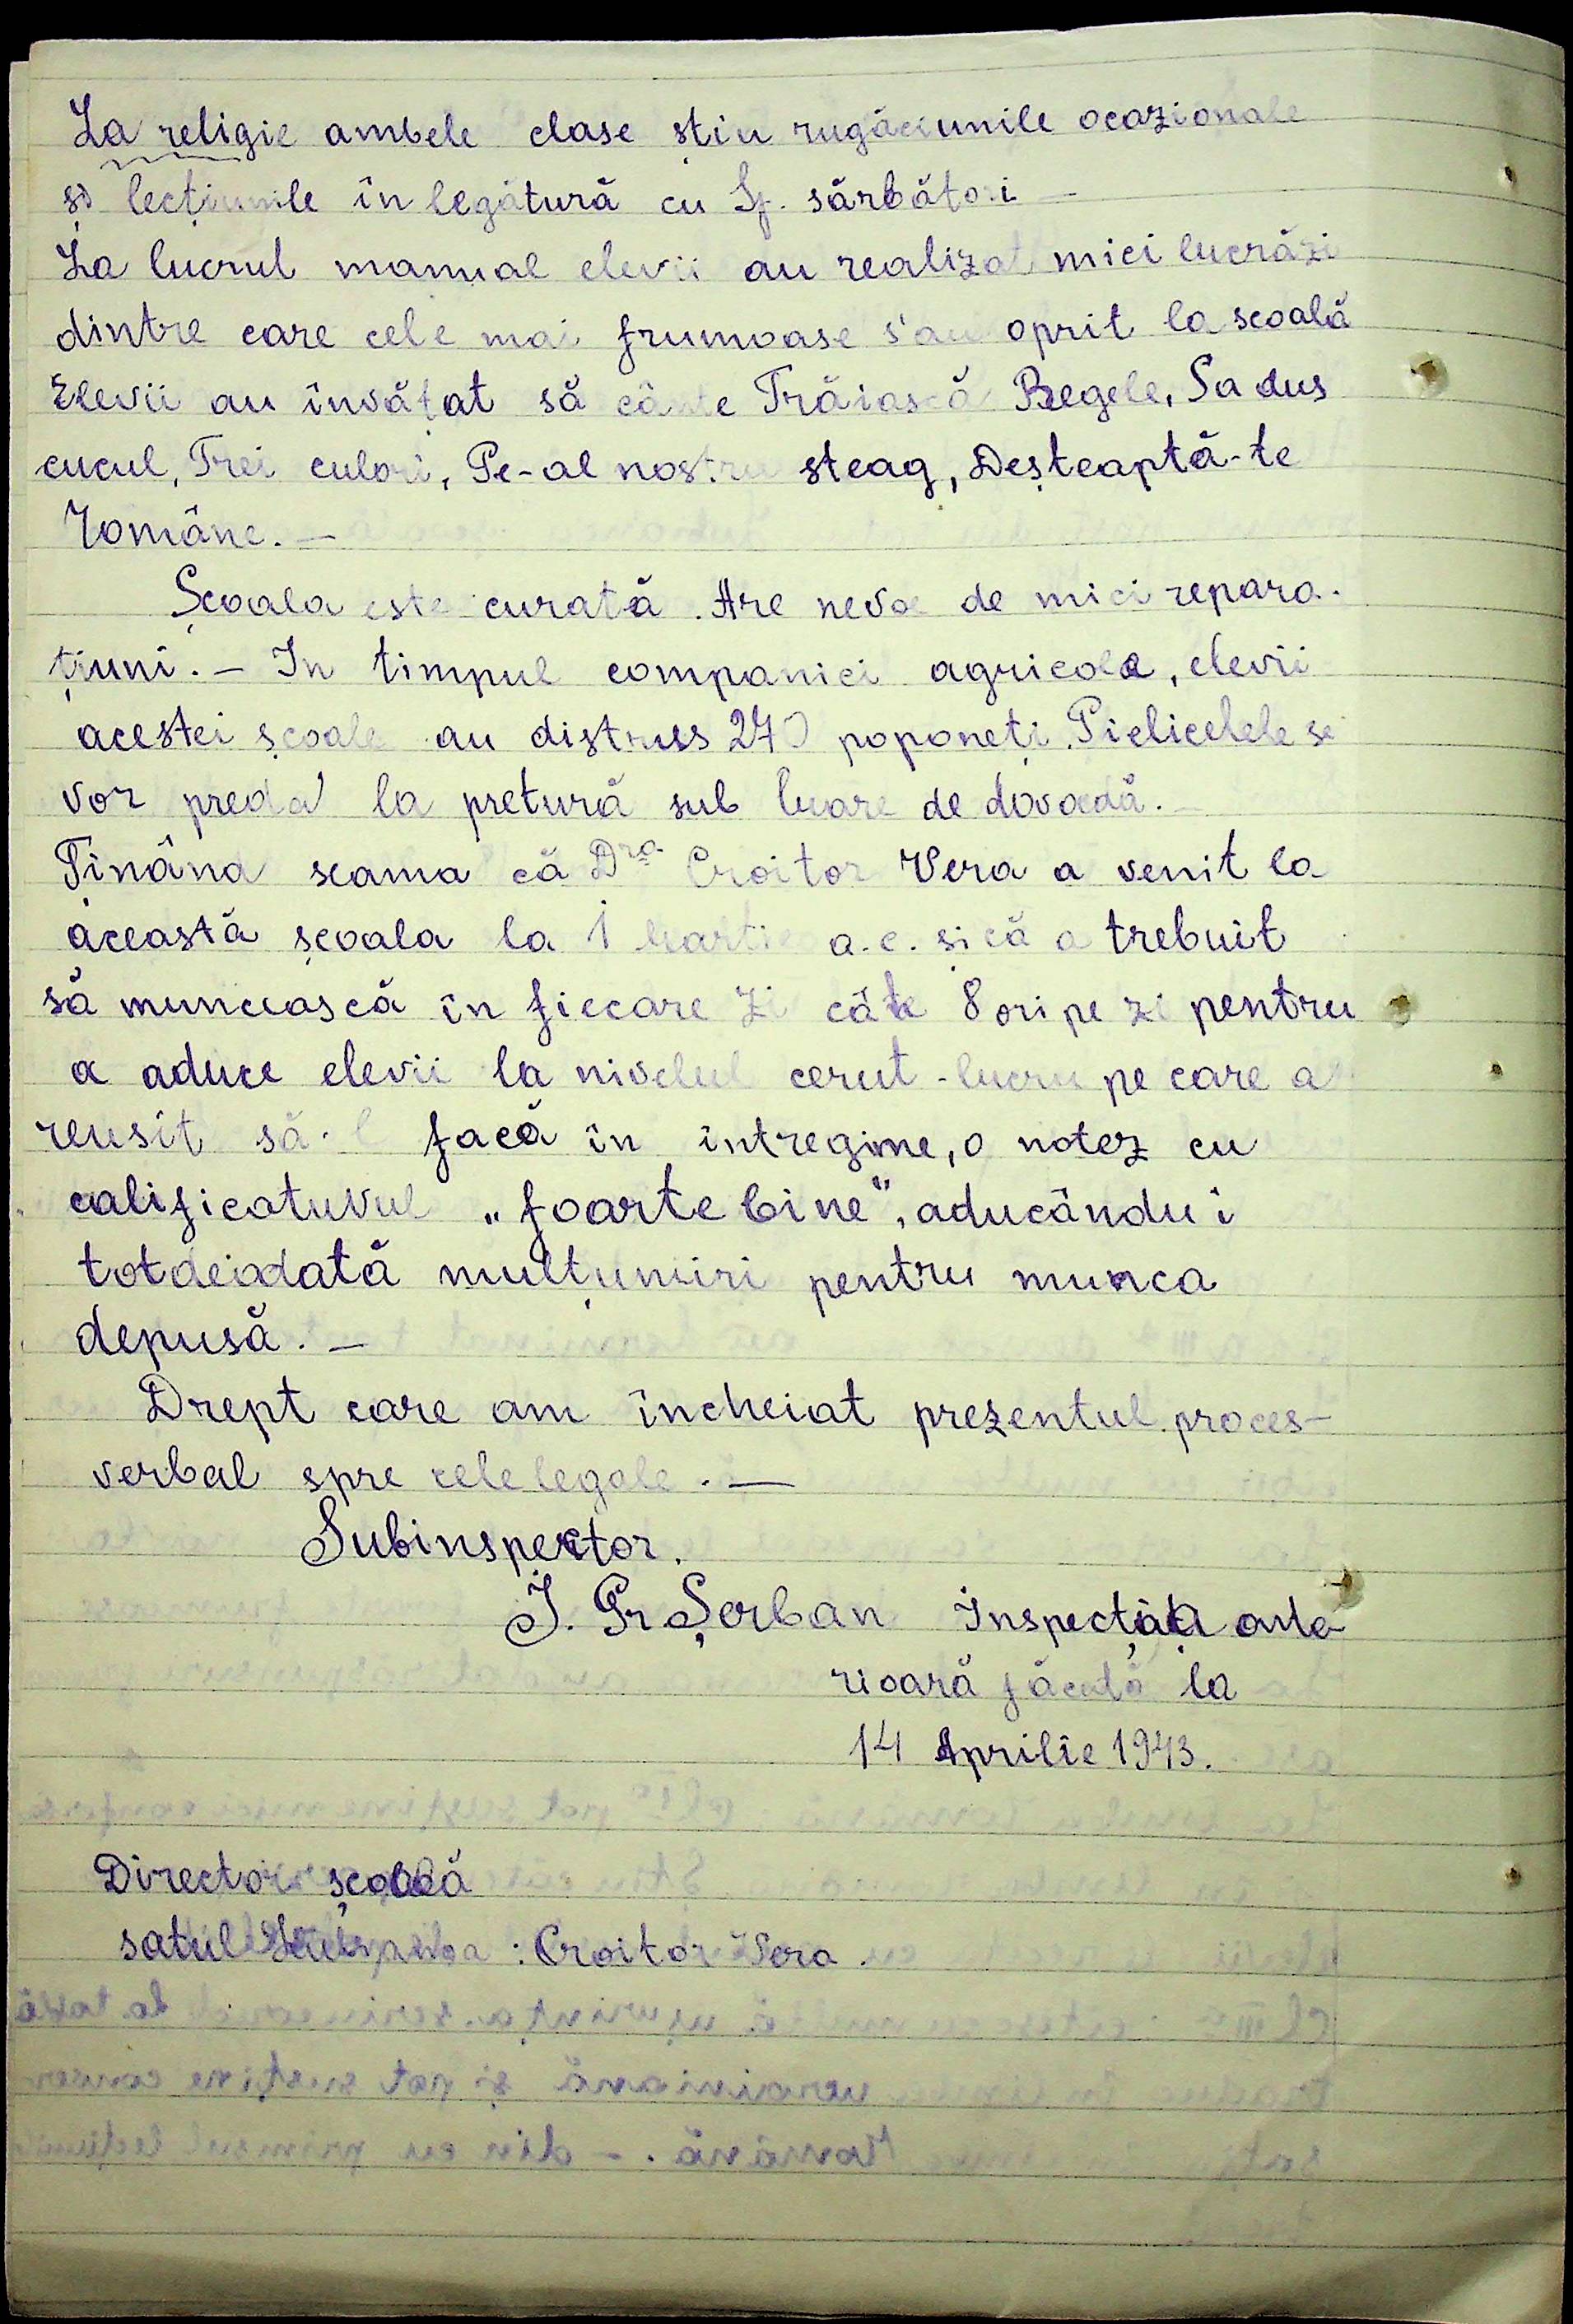 La religie ambele clase știu rugăciunile ocazionale
și lecțiunile în legătură cu Sf. sărbători —
La lucrul manual elevii au realizat mici lucrări
dintre care cele mai frumoase s'au oprit la scoală
Elevii au învățat să cânte Trăiască Regele, Sa dus
cucul, Trei culori, Pe-al nostru steag, Deșteaptă-te
Române. —
Școala este curată. Are nevoe de mici repara-
țiuni. — In timpul companiei agricole, elevii
acestei școale au distruss 270 poponeți. Pielicelele se
vor preda la pretură sub luare de dovadă. —
Ținând seama că Dra Croitor Vera a venit la
această școala la 1 Martie a.c. și că a trebuit
să muncească în fiecare zi câte 8 ori pe zi pentru
a aduce elevii la nivelul cerut - lucru pe care a
reusit să-l facă în intregime, o notez cu
calificatuvul „foarte bine", aducându i
totdeiodată mulțumiri pentru munca
depusă. —
Drept care am încheiat prezentul proces-
verbal spre cele legale. —
Subinspector.
I. Gr Șerban Inspecția ante
rioară făcută la
14 Aprilie 1943.
Director școală
satul : Croitor Vera.